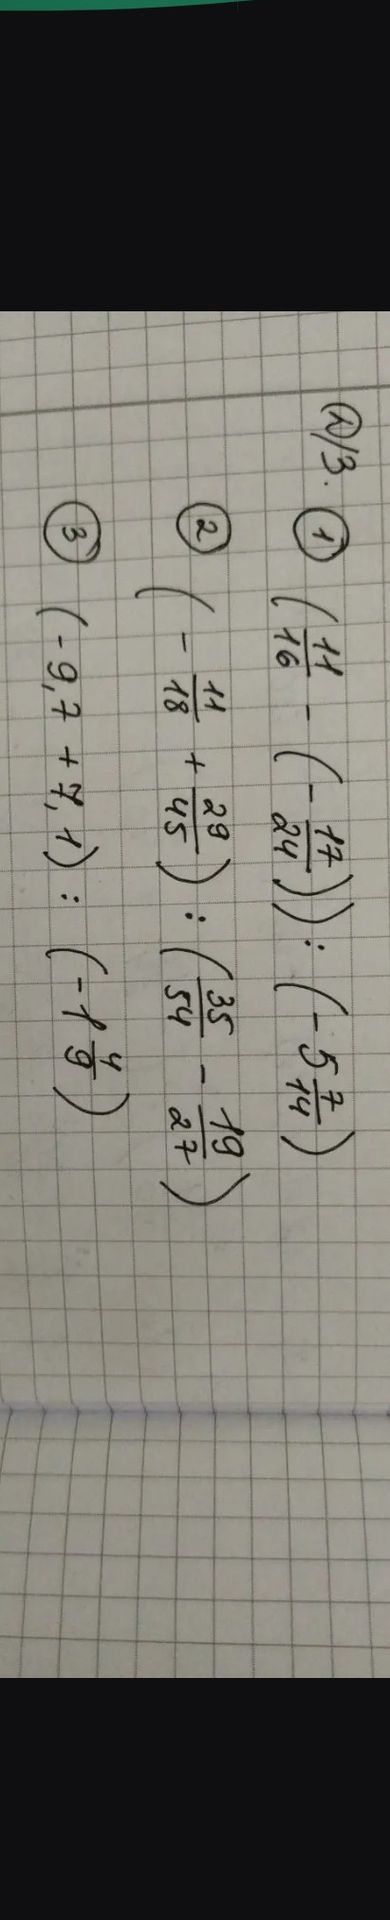 Д/З. ① (11/16 - (-17/24)) : (-5 7/14)
② (-11/18 + 29/45) : (35/54 - 19/27)
③ (-9,7 + 7,1) : (-1 4/9)